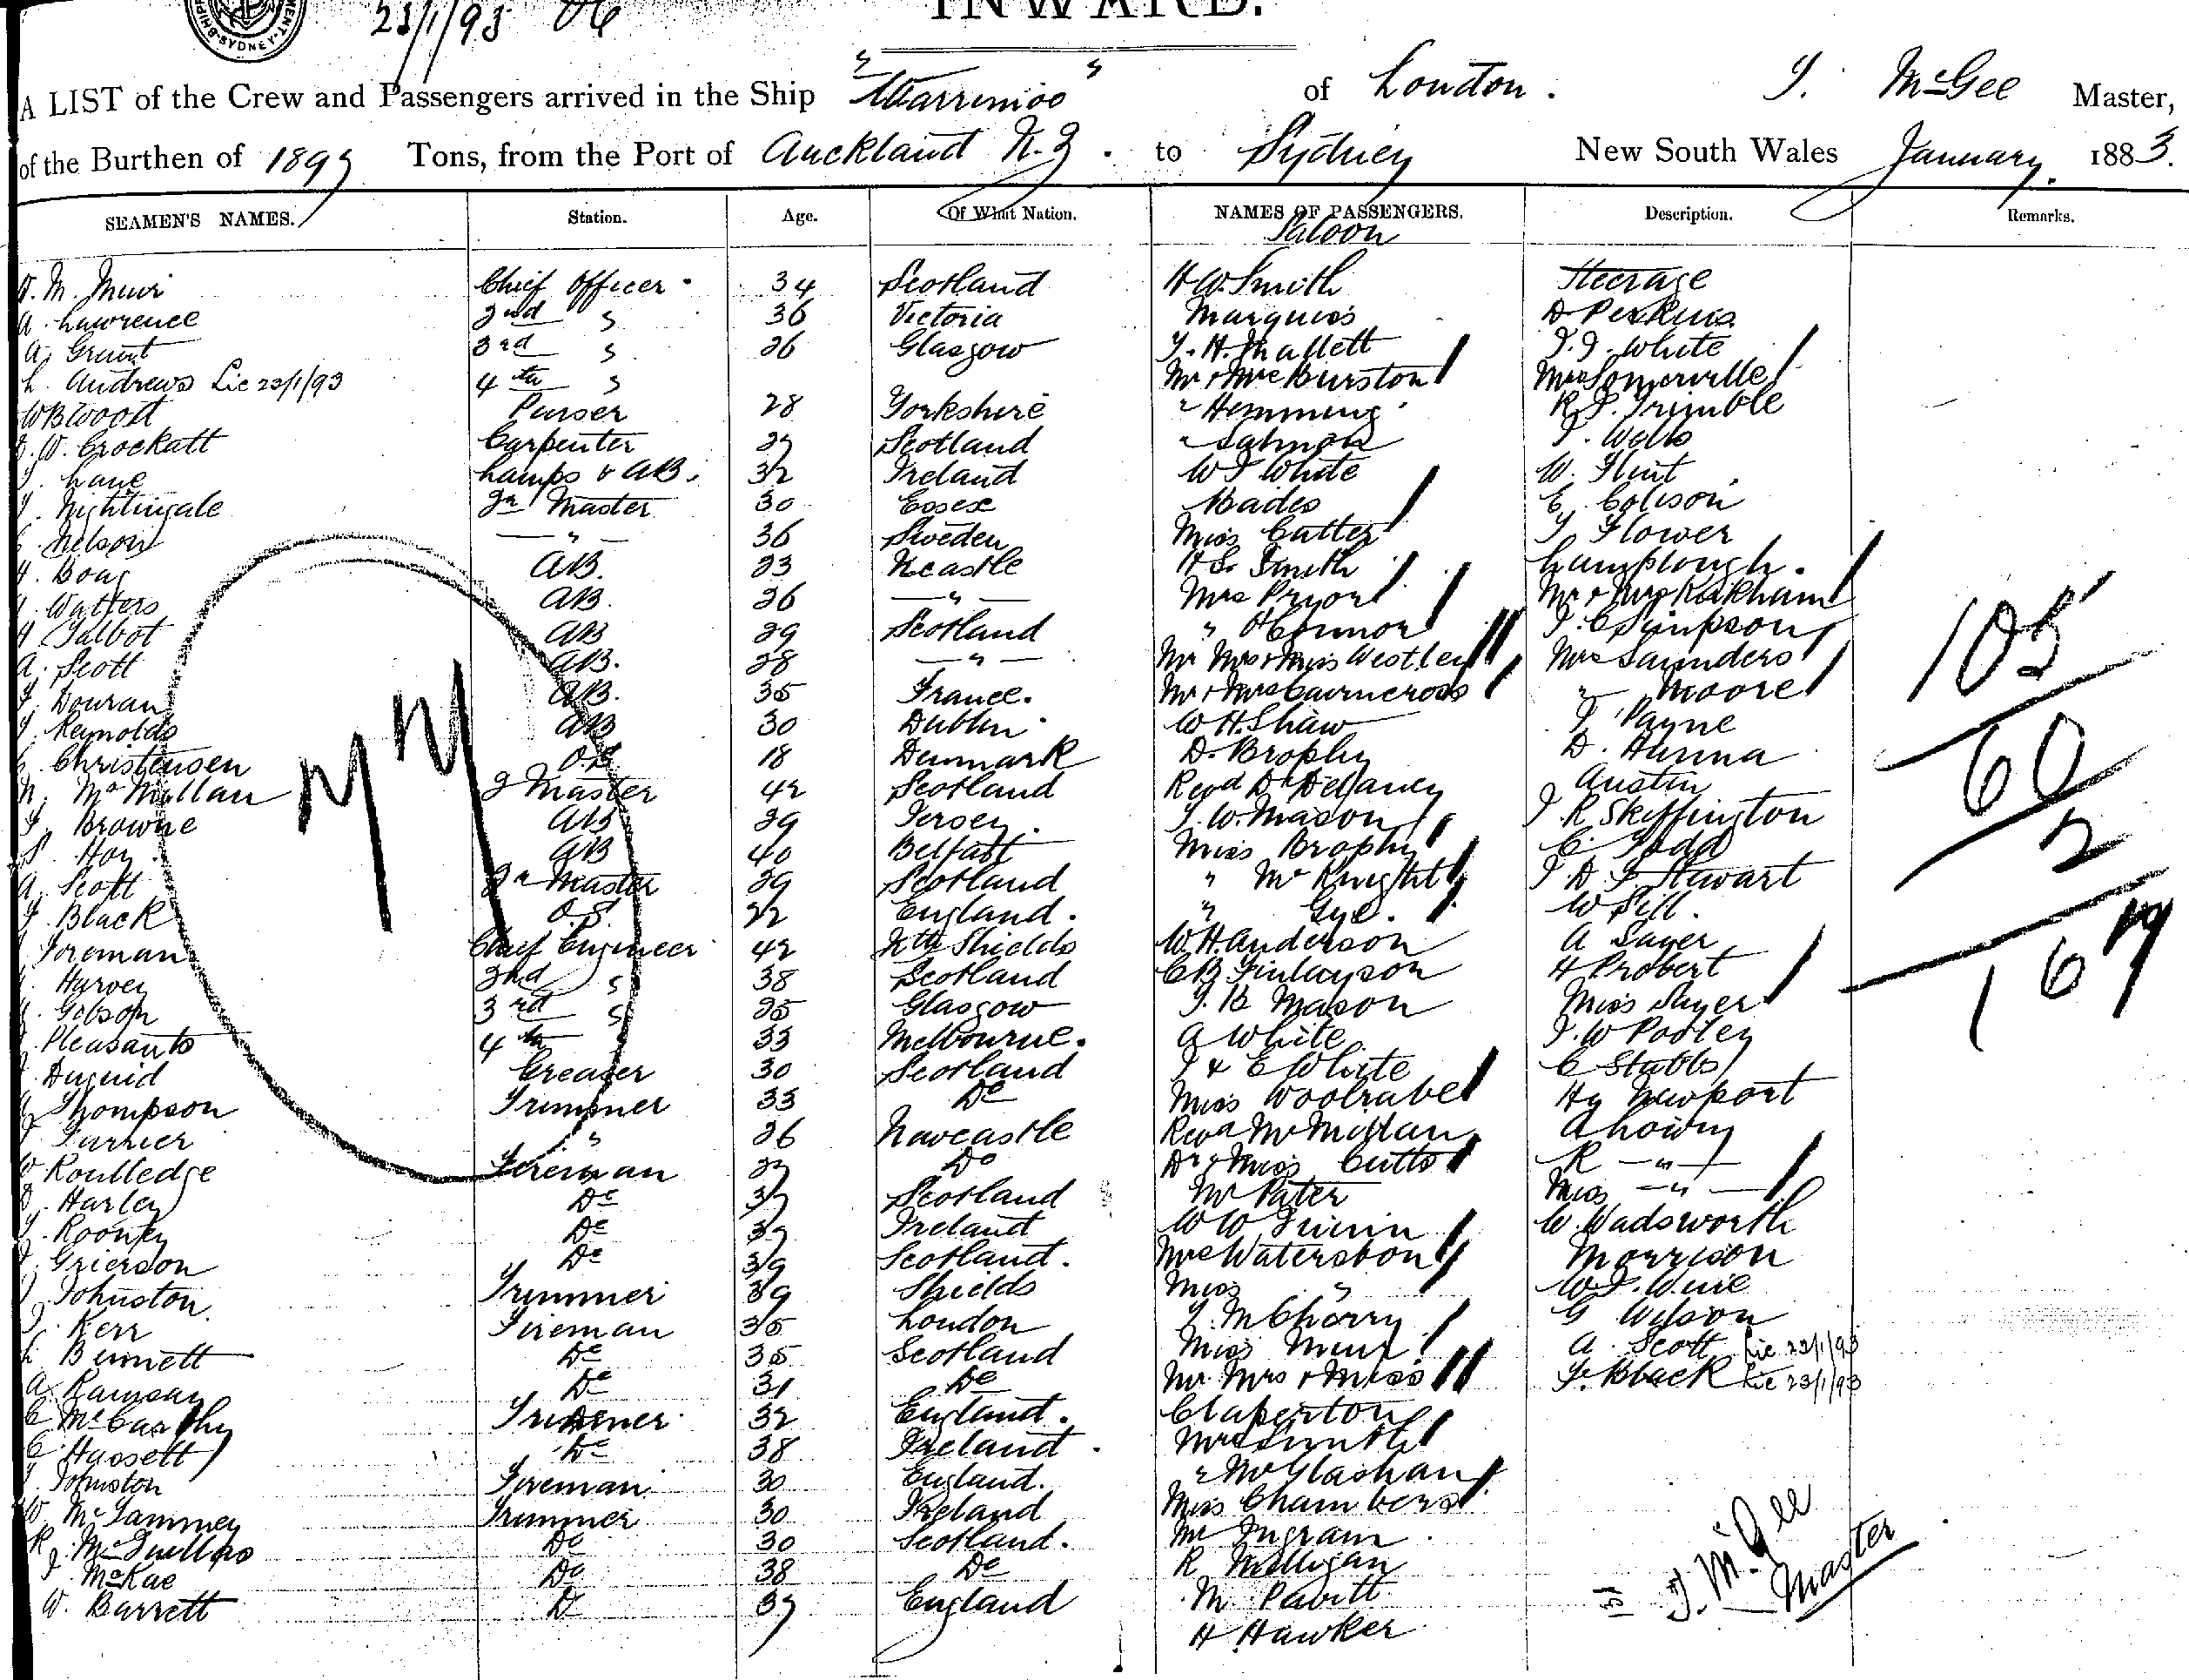 SYDNEY
23/1/93 06
INWARD.
A LIST of the Crew and Passengers arrived in the Ship "Warrimoo" of London. J. McGee Master,
of the Burthen of 1899 Tons, from the Port of Auckland N.Z. to Sydney New South Wales January 1883.
SEAMEN'S NAMES. Station. Age. Of What Nation. NAMES OF PASSENGERS. Description. Remarks.
Saloon
M. Muir Chief Officer 34 Scotland H W. Smith Steerage
A. Lawrence 2nd " 36 Victoria Marquiss D Perkins
A. Grant 3rd " 26 Glasgow J. H. Mallett J. J. White
L. Andrews Lic 23/1/93 4th " Mr & Mrs Burston Mrs Somerville
W B Wood Purser 28 Yorkshire " Hemming R. J. Trimble
W. Crockatt Carpenter 27 Scotland " Salmon J. Wells
J. Lane Lamps & AB. 32 Ireland W J White W. Flint
J. Nightingale Qr Master 30 Essex Eades E. Colison
Nelson — " — 36 Sweden Miss Cutter J Flower
J. Boag AB. 23 Ncastle H S. Smith Lamplough.
J. Watters AB. 26 — " — Mrs Pryor Mr & Mrs Kirkham
H Talbot AB 29 Scotland " O'Connor J. C Simpson
A. Scott AB. 28 — " — Mr Mrs & Miss Westley Mrs Saunders
J. Douran AB. 35 France. Mr & Mrs Cairncross " Moore
J. Reynolds AB 30 Dublin W H. Shaw J. Payne
Christensen O.S 18 Denmark D. Brophy D. Hanna
N. McMillan Q Master 42 Scotland Revd Dr Dellaney Austin
J. Browne AB 29 Jersey. J. W. Mason J. R Skeffington
S. Hoy AB 40 Belfast Miss Brophy C. Todd
A. Scott Qr Master 29 Scotland " McKnight J D J. Stewart
J. Black O.S. 22 England. " Gye. W Sill.
Foreman Chief Engineer 42 Nth Shields W. H. Anderson A Sayer
Harvey 2nd " 38 Scotland C B. Finlayson H Probert
Gibson 3rd " 25 Glasgow J. B Mason Miss Sayer
Pleasants 4th 33 Melbourne. A White J. W Pooley
Duguid Greaser 30 Scotland J & E White C Stubbs
Thompson Trimmer 33 Do Miss Woolrabe Hy Newport
Turner " 26 Newcastle Revd McMillan A Lowry
W Routledge Fireman 27 Do Dr & Miss Cutts R — " —
Harley Do 37 Scotland Mr Pater Miss — " —
J. Rooney Do 39 Ireland W W W. Wadsworth
J. Grierson Do 39 Scotland. Mrs Waterston Morrison
J. Johnston Trimmer 39 Shields Miss " W. J.
J. Kerr Fireman 35 London J. McCharry G Wilson
L Bennett Do 35 Scotland Miss Muir A. Scott Lic 23/1/93
A. Ramsay Do 31 Do Mr. Mrs & Miss J. Black Lic 23/1/93
C McCarthy Trimmer 32 England. Claperton
C. Hassett Do 38 Ireland. Mrs Smith
J. Johnston Fireman 30 England. " McGlashan
W. McTammey Trimmer 30 Ireland Miss Chambers
R. Do 30 Scotland. Mr Ingram
J. McRae Do 38 Do R Milligan
W. Barrett Do 37 England M. Pavitt
H Hawker
105
60
2
167
MM
J. McGee
Master